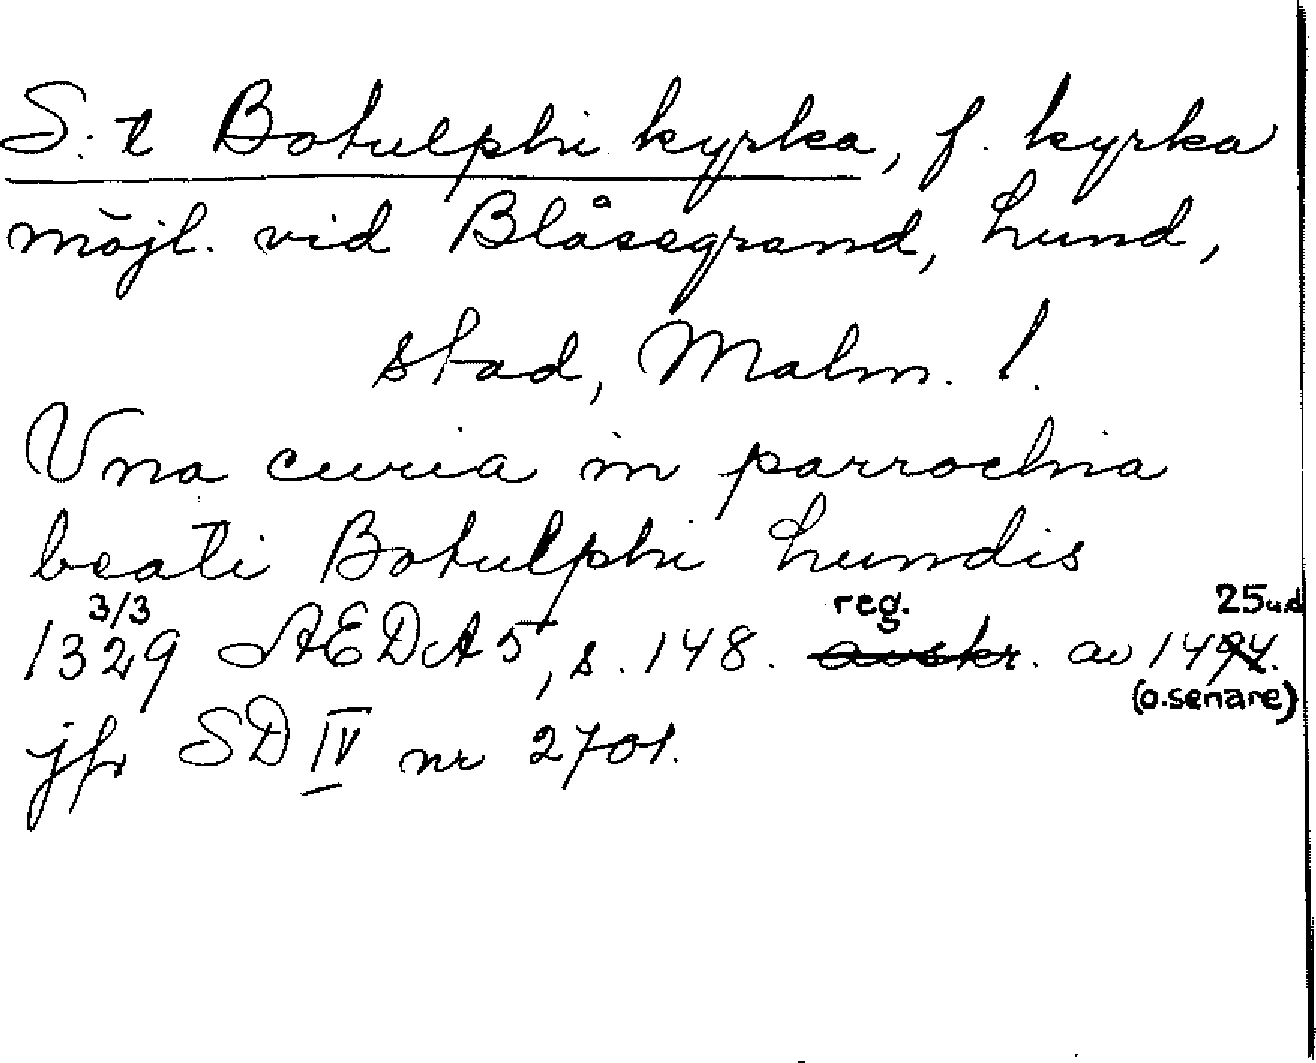 S:t Botulphi kyrka, f. kyrka
möjl. vid Blåsegränd, Lund,
stad, Malm. l.
Vna curia in parrochia
beati Botulphi Lundis
3/3 reg. 25
1329 AEDA 5, s. 148. avskr. av 1494.
(o.senare)
jfr SD IV nr 2701.